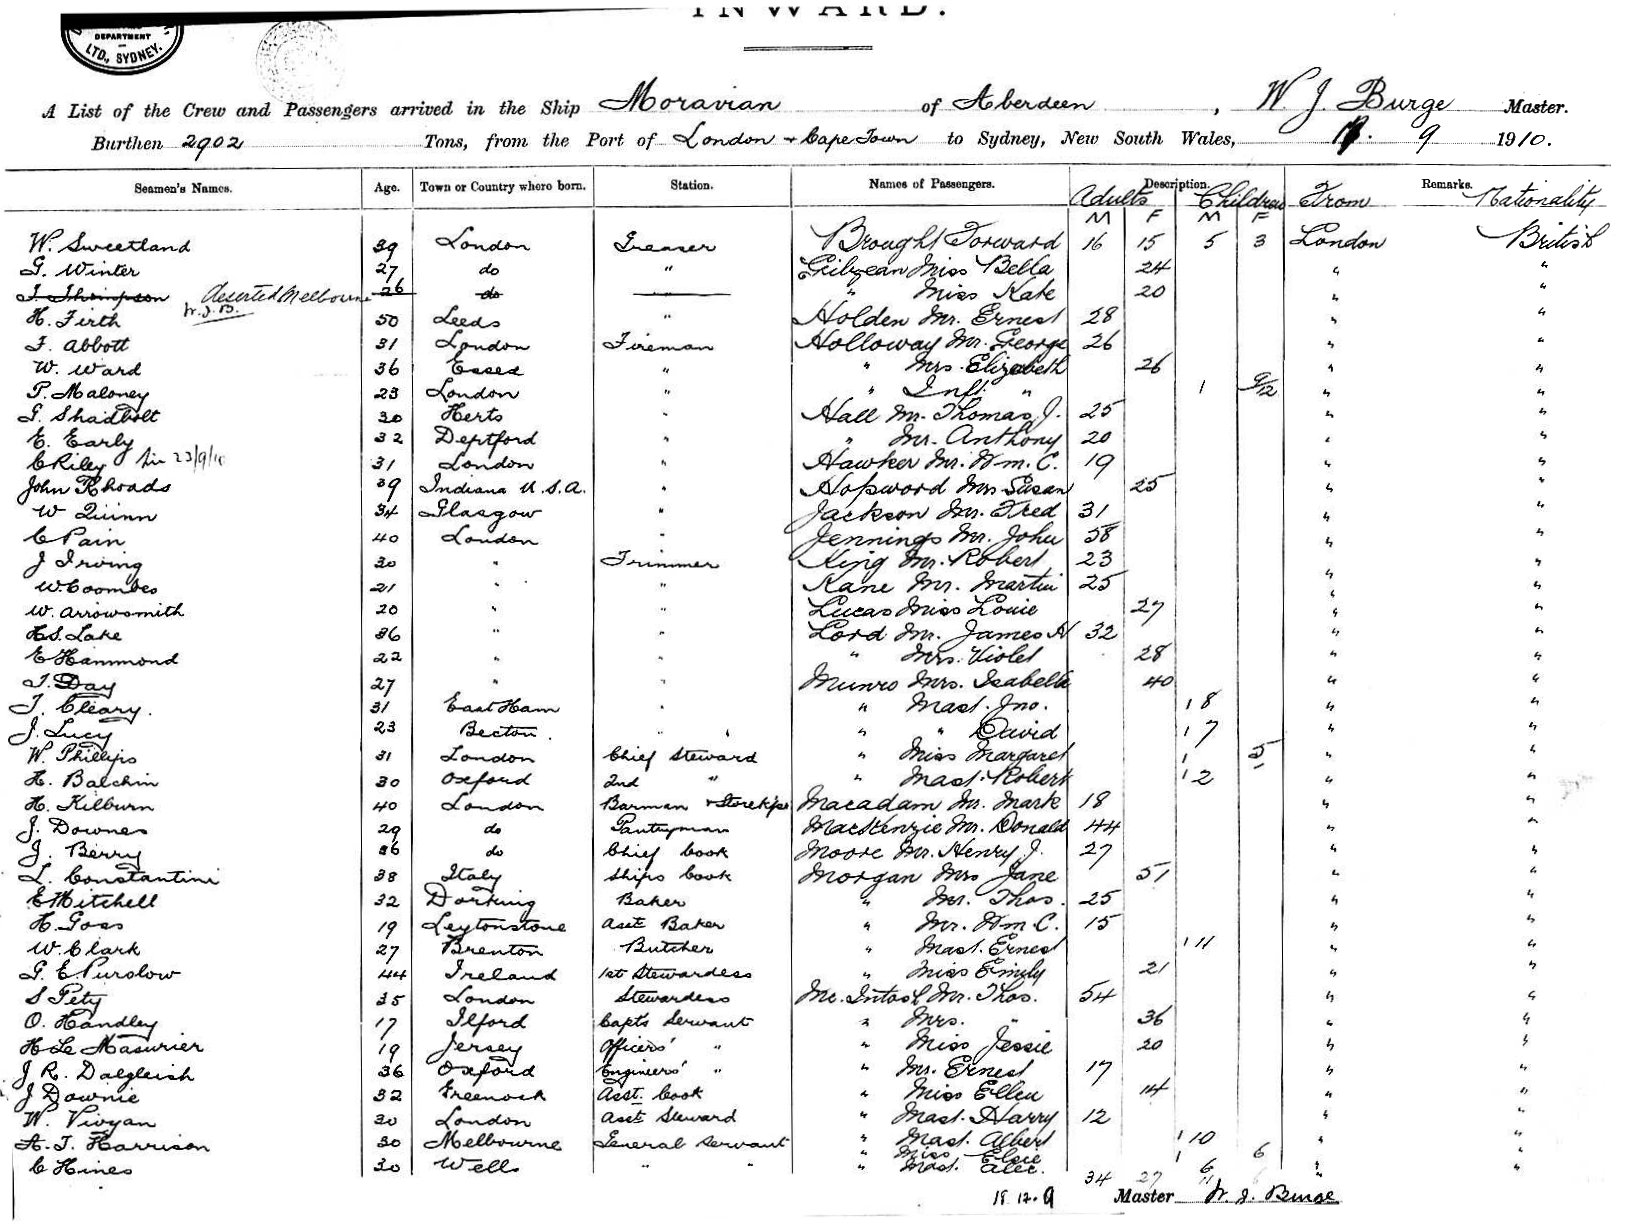 INWARD.
DEPARTMENT
LTD., SYDNEY.
A List of the Crew and Passengers arrived in the Ship Moravian of Aberdeen, W J. Burge Master.
Burthen 2902 Tons, from the Port of London + Cape Town to Sydney, New South Wales, 9 1910.
Seamen's Names. Age. Town or Country where born. Station. Names of Passengers. Description. Remarks.
Adults Children From Nationality
M F M F
W. Sweetland 39 London Greaser Brought Forward 16 15 5 3 London British
G. Winter 27 do " Miss Bella 24 " "
J. Thompson deserted Melbourne 26 do " " Miss Kate 20 " "
W.J.B.
H. Firth 50 Leeds " Holden Mr. Ernest 28 " "
F. Abbott 31 London Fireman Holloway Mr. George 26 " "
W. Ward 36 Essex " " Mrs. Elizabeth 26 " "
P. Maloney 23 London " " Inft. " 1 9/12 " "
G. Shadbolt 30 Herts " Hall Mr. Thomas J. 25 " "
E. Early 32 Deptford " " Mr. Anthony 20 " "
C Riley 23/9/10 31 London " Hawker Mr. Wm. C. 19 " "
John Rhoads 39 Indiana U.S.A. " Hopword Mrs Susan 25 " "
W Quinn 34 Glasgow " Jackson Mr. Fred 31 " "
C Pain 40 London " Jennings Mr. John 58 " "
J Irving 30 " Trimmer King Mr. Robert 23 " "
W. Coombes 21 " " Kane Mr. Martin 25 " "
W. Arrowsmith 20 " " Lucas Miss Louie 27 " "
H.S. Lake 36 " " Lord Mr. James H 32 " "
E Hammond 22 " " " Mrs. Violet 28 " "
J. Day 27 " " Munro Mrs. Isabella 40 " "
T. Cleary. 31 East Ham " " Mast. Jno. 8 " "
J. Lucy 23 Becton. " " " David 7 " "
W. Phillips 31 London Chief Steward " Miss Margaret 5 " "
H. Balchin 30 Oxford 2nd " " Mast. Robert 2 " "
H. Kilburn 40 London Barman & Storekpr Macadam Mr. Mark 18 " "
J. Downes 29 do Pantryman MacKenzie Mr. Donald 44 " "
J. Berry 36 do Chief Cook Moore Mr. Henry J. 27 " "
L. Constantini 38 Italy Ships Cook Morgan Mrs Jane 51 " "
E Mitchell 32 Dorking Baker " Mr. Thos. 25 " "
H. Goss 19 Leytonstone Asst Baker " Mr. Wm C. 15 " "
W. Clark 27 Brenton Butcher " Mast. Ernest 11 " "
G. E. Purslow 44 Ireland 1st Stewardess " Miss Emily 21 " "
S Pety 35 London Stewardess Mc.Intosh Mr. Thos. 54 " "
O. Handley 17 Ilford Capts Servant " Mrs. " 36 " "
H Le Masurier 19 Jersey Officers' " " Miss Jessie 20 " "
J R. Dalgleish 36 Oxford Engineers' " " Mr. Ernest 17 " "
J Downie 32 Greenock Asst. Cook " Miss Ellen 14 " "
W. Vivyan 30 London Asst Steward " Mast. Harry 12 " "
A. J. Harrison 30 Melbourne General Servant " Mast. Albert 10 " "
" Miss Elsie 6
C Hines 30 Wells " " " Mast. Alec. 6 " "
34 27 11
18.12.9 Master W. J. Burge